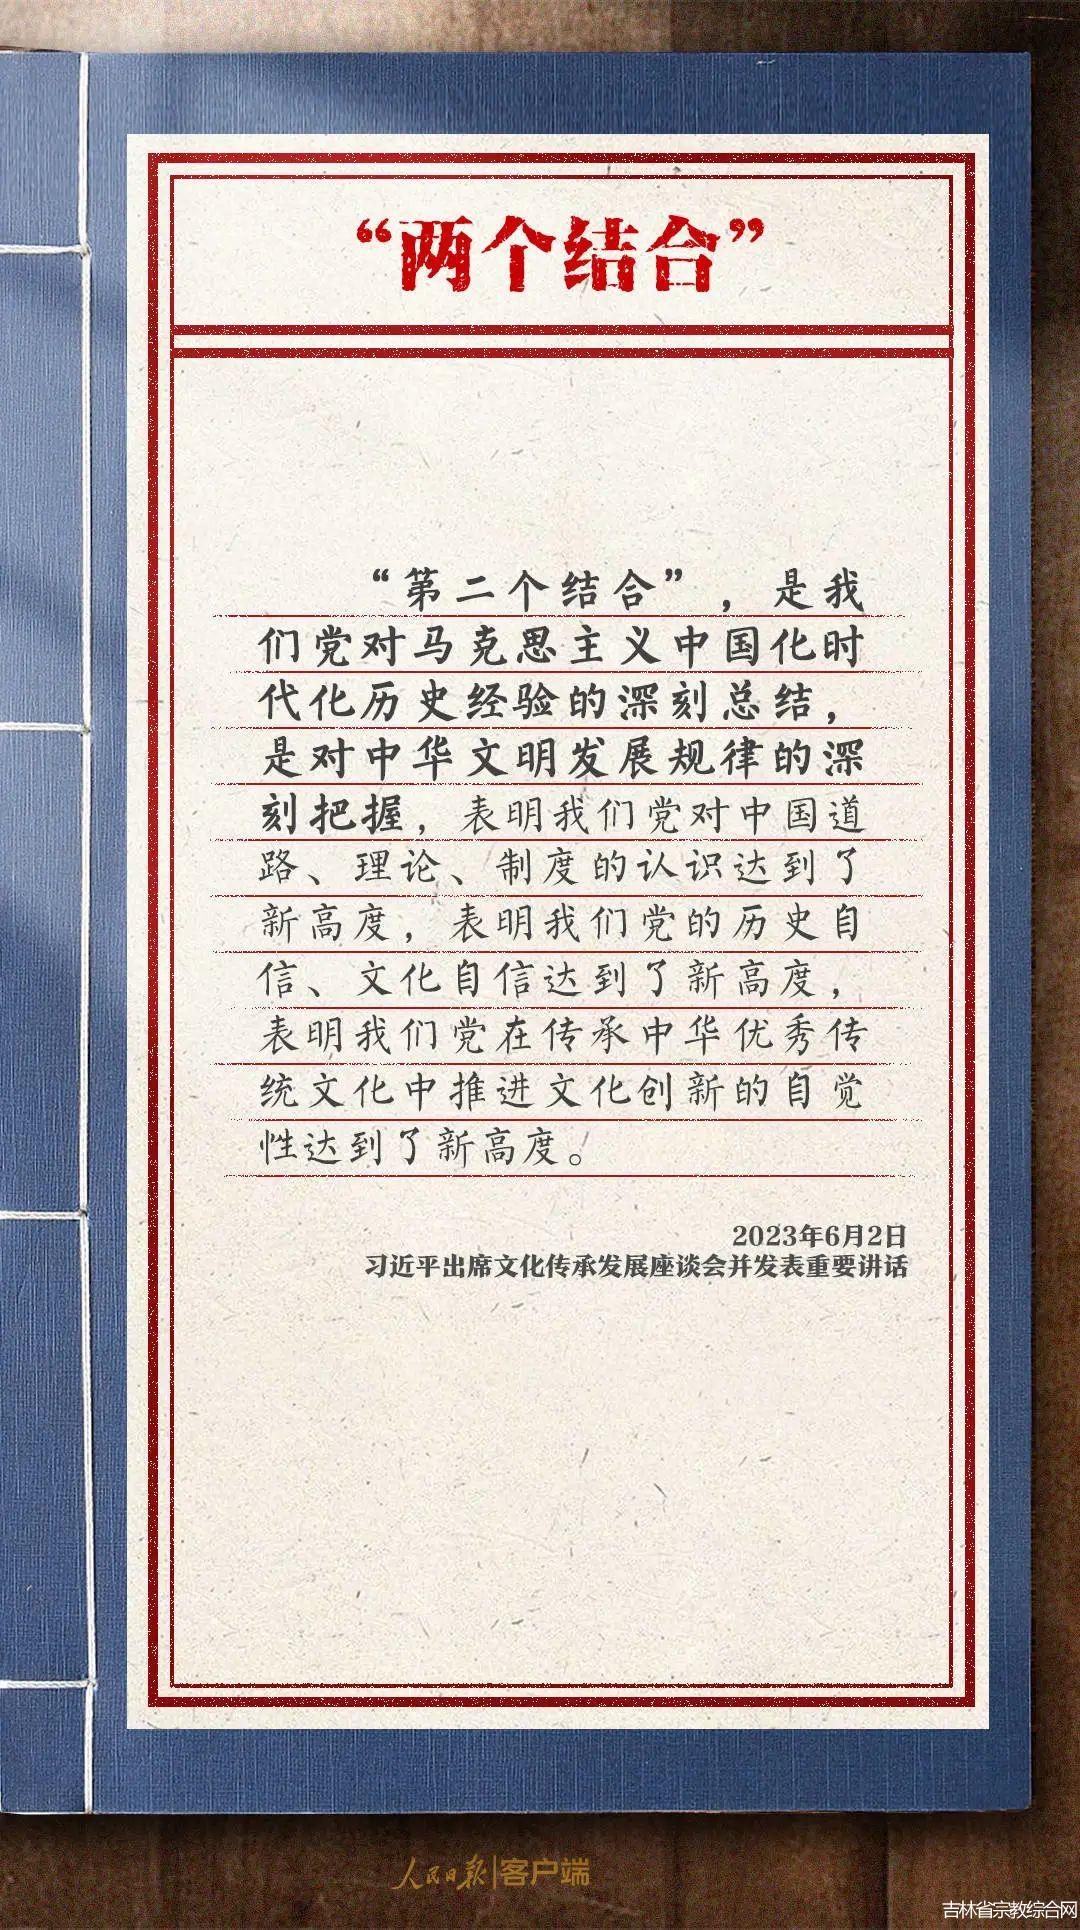 “两个结合”
“第二个结合”，是我
们党对马克思主义中国化时
代化历史经验的深刻总结，
是对中华文明发展规律的深
刻把握，表明我们党对中国道
路、理论、制度的认识达到了
新高度，表明我们党的历史自
信、文化自信达到了新高度，
表明我们党在传承中华优秀传
统文化中推进文化创新的自觉
性达到了新高度。
2023年6月2日
习近平出席文化传承发展座谈会并发表重要讲话
人民日报|客户端
吉林省宗教综合网